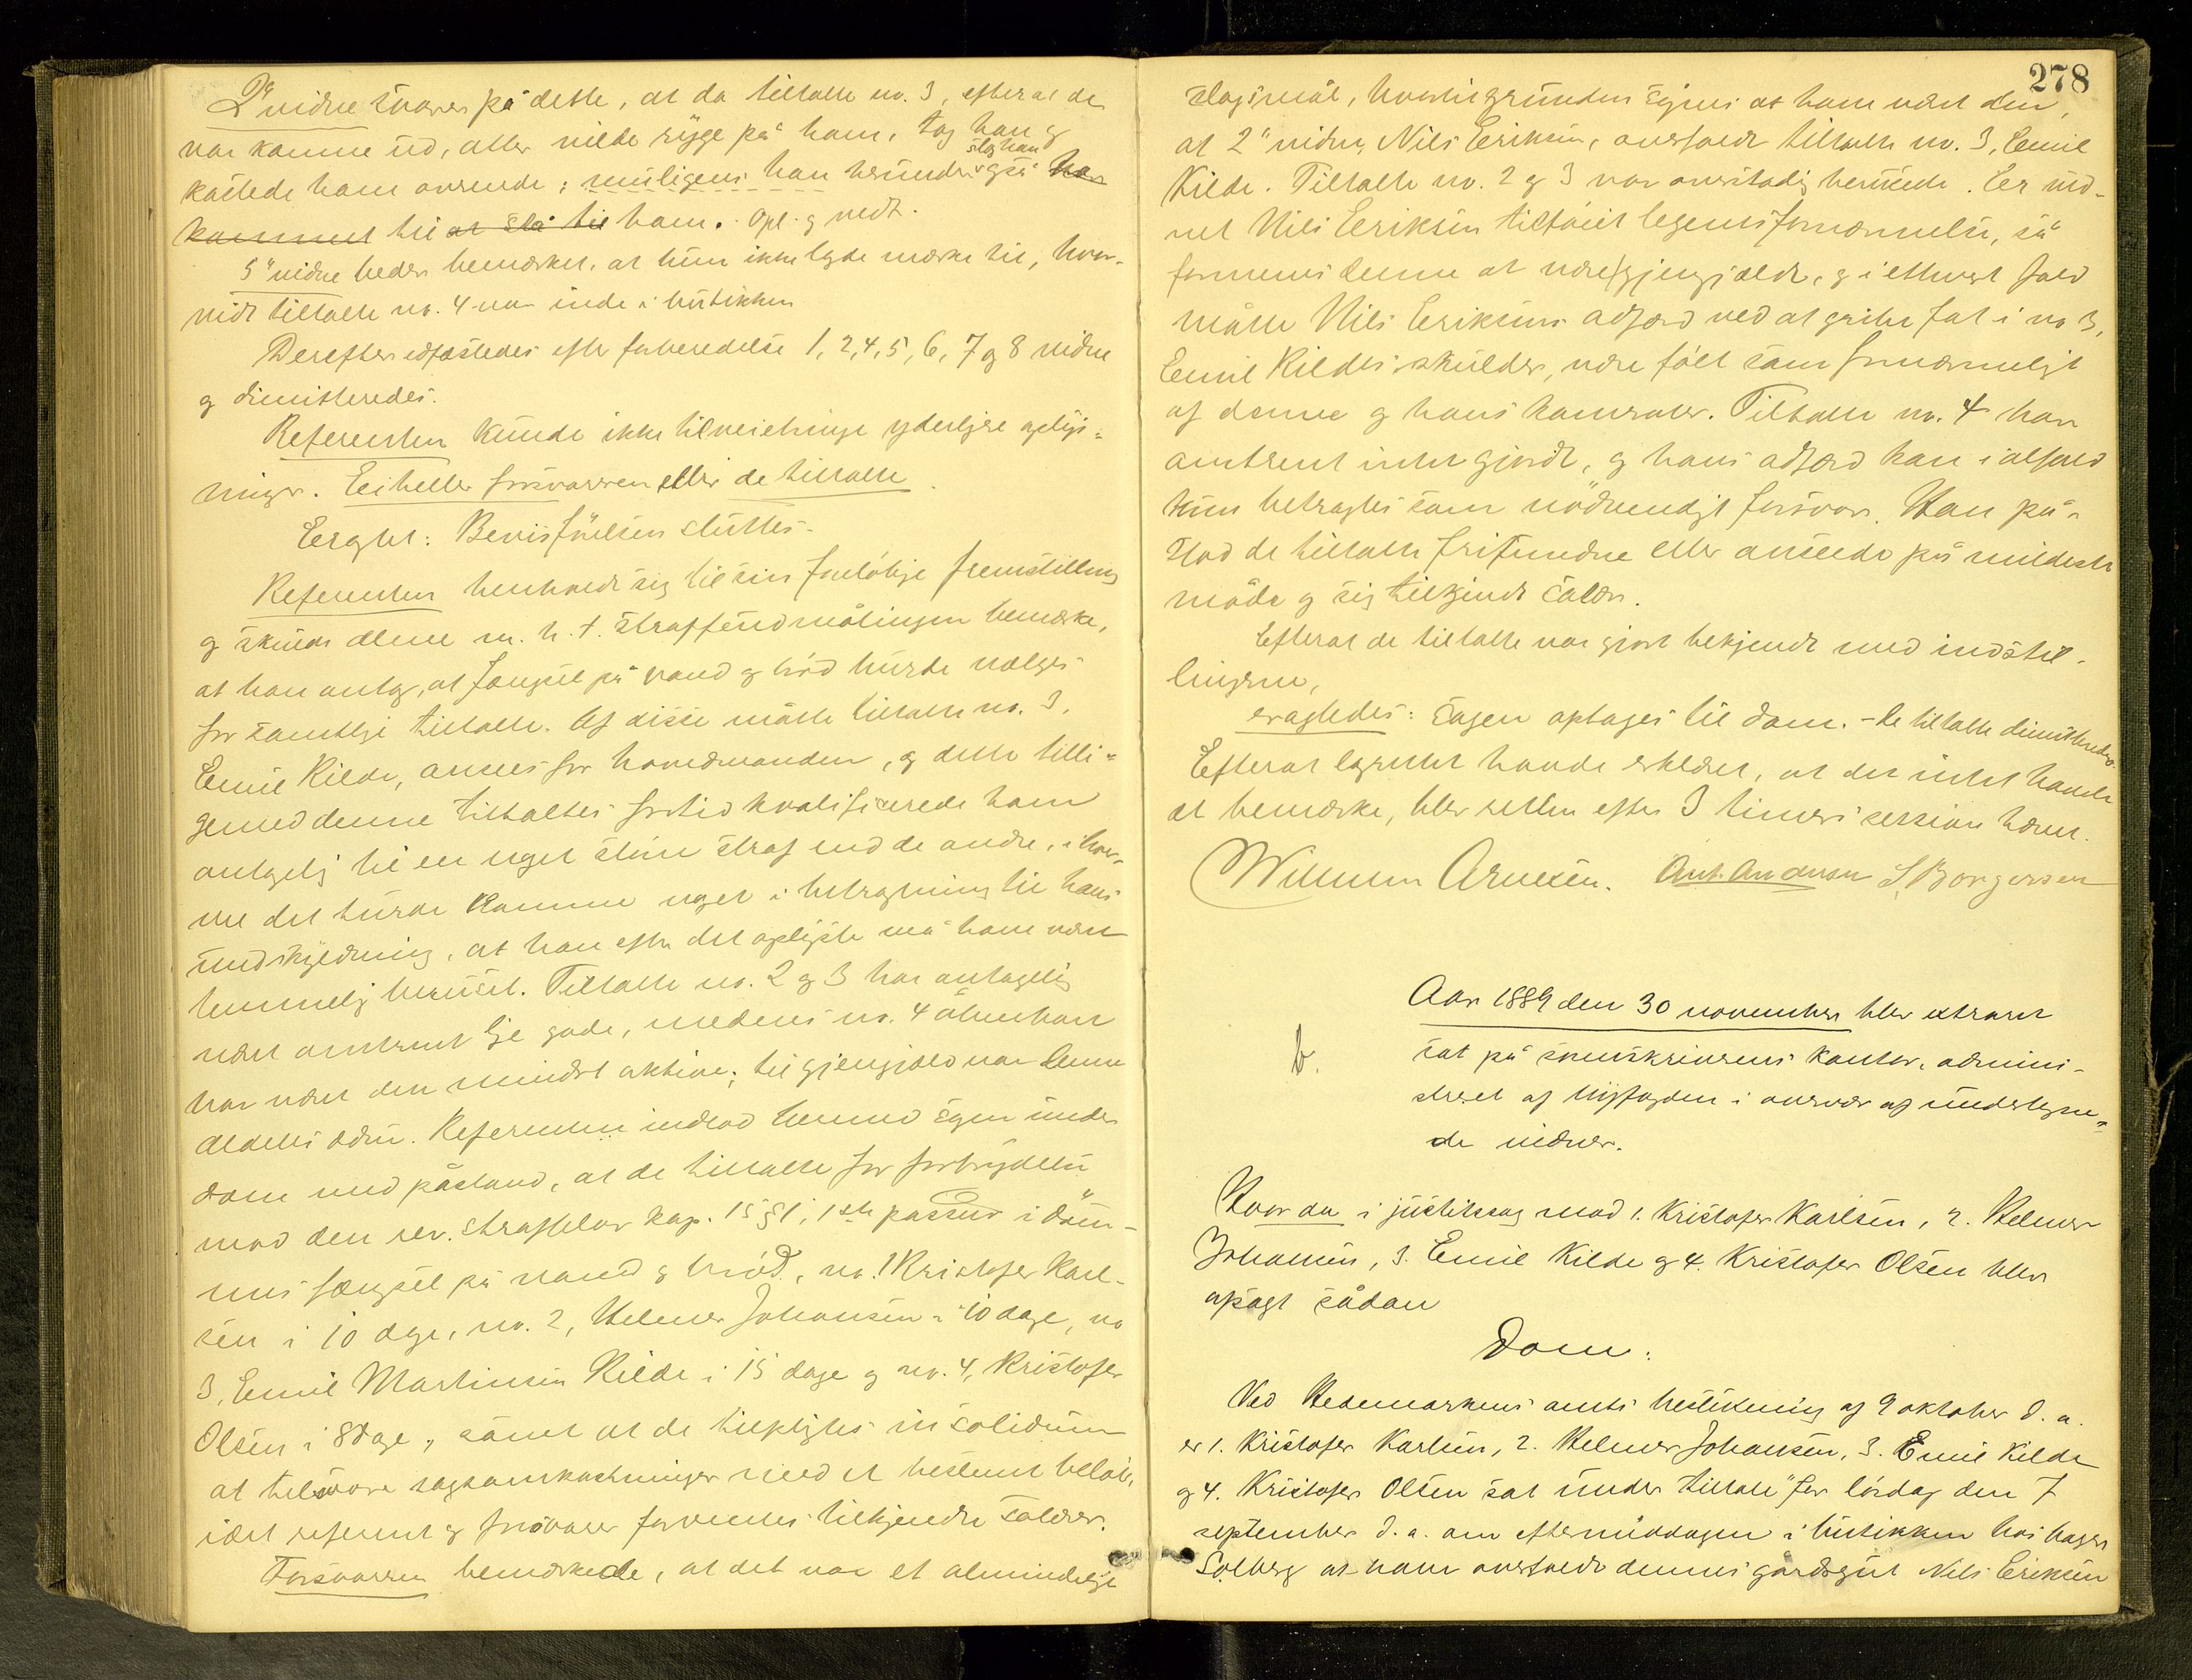 2det vidne svarer på dette, at da tiltalte no. 3, efter at de
var komne ud, atter vilde ryge på ham, tog han og
kastede ham overende; muligens han herunder også slog han
kommet til at slå til ham. Opl. og vedt.
5te vidne beder bemærket, at hun ikke lagde mærke til, hvor-
vidt tiltalte no. 4 var inde i butikken
Derefter edfæstedes efter forberedelse 1, 2, 4, 5, 6, 7 og 8 vidne
og dimitteredes.
Referenten kunde ikke tilveiebringe yderligere oplys-
ninger. Ei heller forsvareren eller de tiltalte.
Eragtet: Bevisførelsen sluttes.
Referenten henholdt sig til sin foreløbige fremstilling
og skulde alene m. h. t. straffeudmålingen bemærke,
at han antog, at fængsel på vand og brød burde vælges
for samtlige tiltalte. Af disse måtte tiltalte no. 3,
Emil Kilde, ansees for hovedmanden, og dette tilli-
gemed denne tiltaltes fortid kvalificerede ham
antagelig til en noget større straf end de andre, ihvor-
vel det burde komme noget i betragtning til hans
undskyldning, at han efter det oplyste må have været
temmelig beruset. Tiltalte no. 2 og 3 har antagelig
været omtrent lige gode, medens no. 4 åbenbart
har været den mindst aktive; til gjengjæld var denne
aldeles ædru. Referenten indlod herved sagen under
dom med påstand, at de tiltalte for forbrydelse
mod den rev. straffelov kap. 15 § 1, 1ste passus i døm-
mes fængsel på vand og brød, no. 1 Kristofer Karl-
sen i 10 dage, no. 2, Helmer Johansen i 10 dage, no
3, Emil Martinsen Kilde i 15 dage og no. 4, Kristofer
Olsen i 8 dage, samt at de tilpligtes in solidum
at tilsvare sagsomkostninger med et bestemt beløb,
idet referent og forsvarer forventes tilkjendte salær.
Forsvareren bemærkede, at det var et almindeligt
278
slagsmål, hvortil grunden synes at have været den,
at 2det vidne, Nils Eriksen, overfaldt tiltalte no. 3, Emil
Kilde. Tiltalte no. 2 og 3 var overstadig berusede. Er vid-
net Nils Eriksen tilføiet legemsfornærmelse, så
formenes denne at være gjengjældt, og i ethvert fald
måtte Nils Eriksens adfærd ved at gribe fat i no 3,
Emil Kildes skulder, være følt som fornærmeligt
af denne og hans kamerater. Tiltalte no. 4 har
omtrent intet gjort, og hans adfærd kan i alfald
kun betragtes som nødvendigt forsvar. Han på-
stod de tiltalte frifundne eller anseede på mildeste
måde og sig tilkjendt salær.
Efterat de tiltalte var gjort bekjendt med indstil-
lingerne,
eragtedes: Sagen optages til dom. – De tiltalte dimitteredes.
Efterat lagrettet havde erklæret, at det intet havde
at bemærke, blev retten efter 3 timers session hævet.
Wilhelm Arnesen. Ant. Andersen S. Borgersen
Aar 1889 den 30 november blev extraret
b. sat på sorenskriverens kontor, admini-
streret af byfogden i overvær af undertegne-
de vidner.
Hvor da i justitssag mod 1. Kristofer Karlsen, 2. Helmer
Johansen, 3. Emil Kilde og 4. Kristofer Olsen blev
afsagt sådan
Dom:
Ved Hedemarkens amts beslutning af 9 oktober d. a.
er 1. Kristofer Karlsen, 2. Helmer Johansen, 3. Emil Kilde
og 4. Kristofer Olsen sat under tiltale "for lørdag den 7
september d. a. om eftermiddagen i butikken hos bager
Solberg at have overfaldt dennes gårdsgut Nils Eriksen